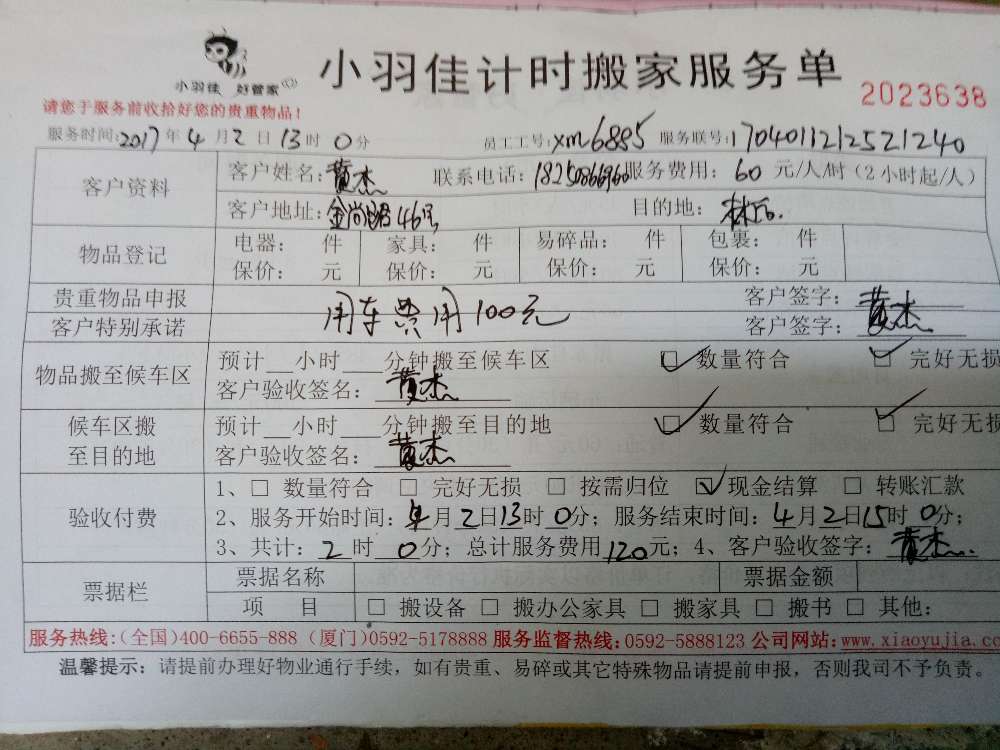 小羽佳计时搬家服务单
小羽佳 好管家
2023638
请您于服务前收拾好您的贵重物品!
服务时间:2017年4月2日13时0分 员工工号:xm6885 服务联号:1704011212521240
客户资料
客户姓名:黄杰 联系电话:18250866960 服务费用:60元/人/时(2小时起/人)
客户地址:金尚路46号 目的地:
物品登记
电器: 件 家具: 件 易碎品: 件 包裹: 件
保价: 元 保价: 元 保价: 元 保价: 元
贵重物品申报 客户签字:黄杰
客户特别承诺 用车费用100元 客户签字:
物品搬至候车区
预计__小时___分钟搬至候车区 ☑数量符合 ☑完好无损
客户验收签名:黄杰
候车区搬
至目的地
预计__小时___分钟搬至目的地 ☑数量符合 ☑完好无损
客户验收签名:黄杰
验收付费
1、□ 数量符合 □ 完好无损 □ 按需归位 ☑现金结算 □ 转账汇款
2、服务开始时间:4月2日13时0分;服务结束时间:4月2日15时0分;
3、共计:2时0分;总计服务费用120元;4、客户验收签字:黄杰
票据栏
票据名称 票据金额
项 目 □ 搬设备 □ 搬办公家具 □ 搬家具 □ 搬书 □ 其他:
服务热线:(全国)400-6655-888 (厦门)0592-5178888 服务监督热线:0592-5888123 公司网站:www.xiaoyujia.co
温馨提示:请提前办理好物业通行手续,如有贵重、易碎或其它特殊物品请提前申报,否则我司不予负责。